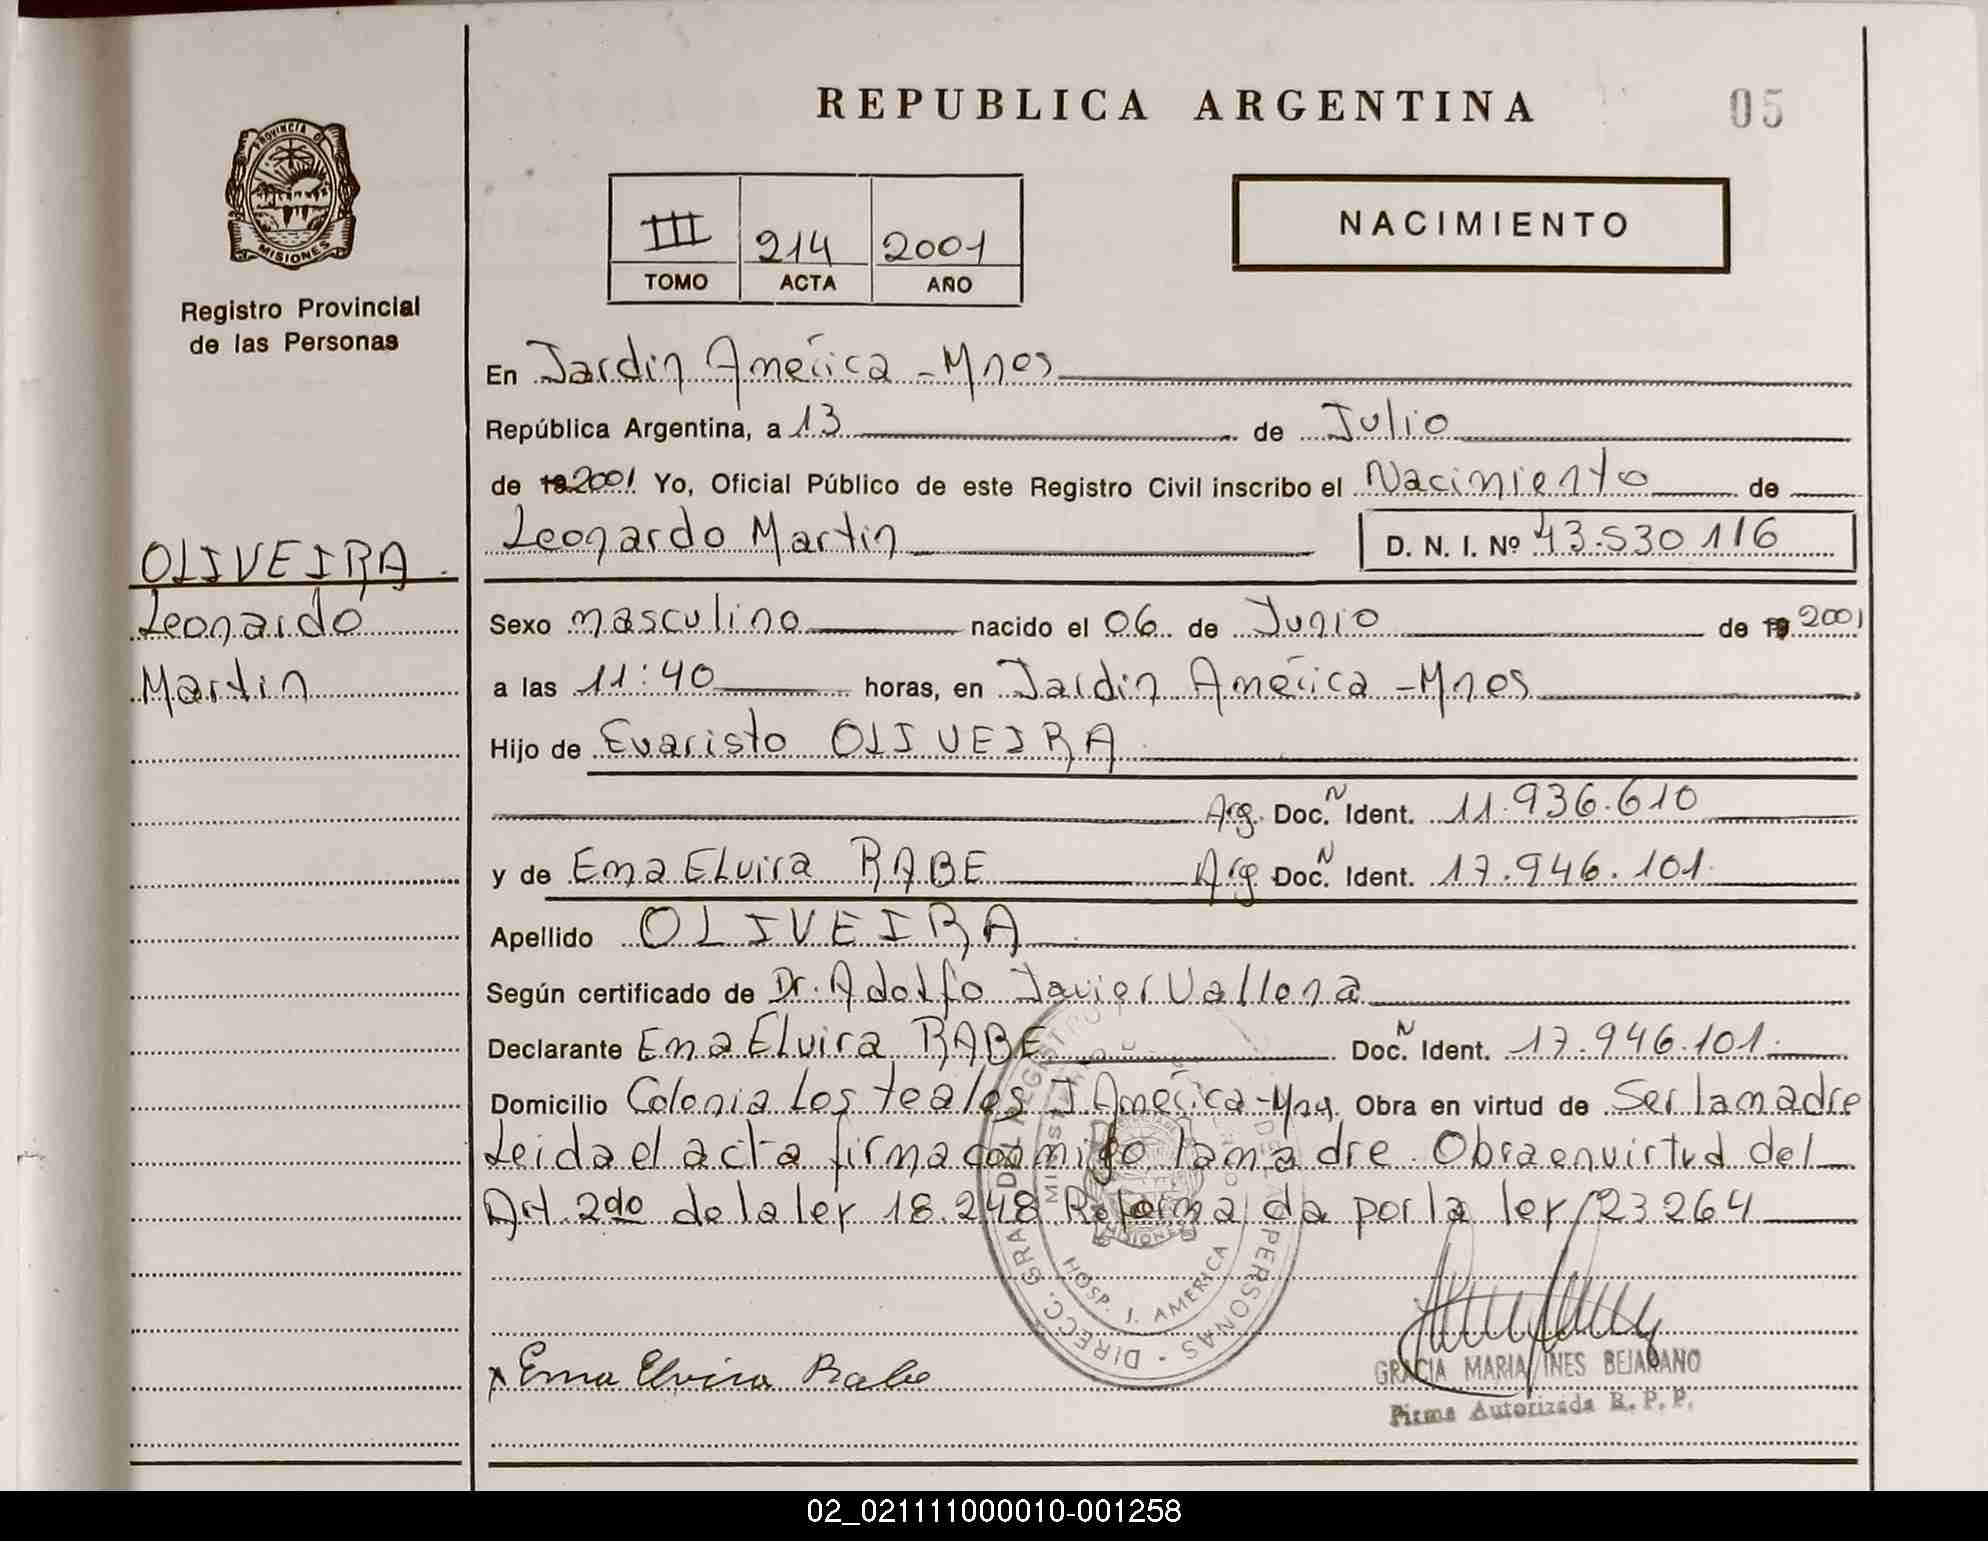 REPUBLICA ARGENTINA
05
PROVINCIA DE
MISIONES
Registro Provincial
de las Personas
III 214 2001
TOMO ACTA AÑO
NACIMIENTO
En Jardin América - Mnes
República Argentina, a 13 de Julio
de 19 2001 Yo, Oficial Público de este Registro Civil inscribo el Nacimiento de
Leonardo Martin D. N. I. Nº 43.530 116
OLIVEIRA
Leonardo
Martin
Sexo masculino nacido el 06 de Junio de 19 2001
a las 11:40 horas, en Jardin América - Mnes
Hijo de Evaristo OLIVEIRA
Arg. Doc. N Ident. 11.936.610
y de Ema Elvira RABE Arg Doc. N Ident. 17.946.101
Apellido OLIVEIRA
Según certificado de Dr. Adolfo Javier Vallena
Declarante Ema Elvira RABE Doc. N Ident. 17.946.101
Domicilio Colonia Los teales J. América - Mns, Obra en virtud de Ser la madre
Leida el acta firma conmigo la madre. Obra en virtud del
Art. 2do de la ley 18.248 Reformada por la ley 23264
DIRECC. GRAL. DEL REGISTRO PERSONAS
MISIONES
HOSP. J. AMERICA
x Ema Elvira Rabe
GRACIA MARIA INES BEJARANO
Firma Autorizada R. P. P.
02_021111000010-001258